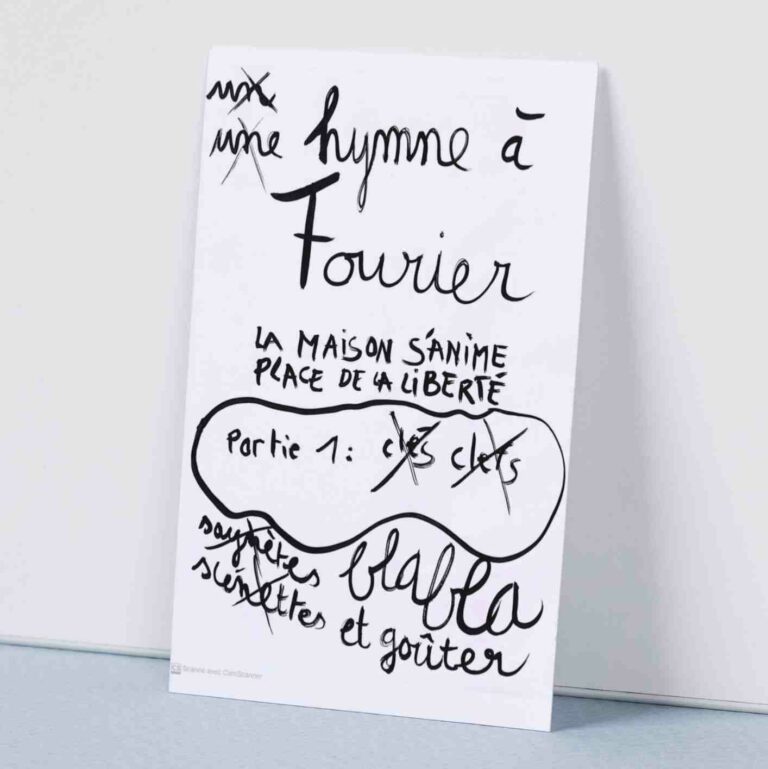 un
une hymne à
Fourier
LA MAISON S'ANIME
PLACE DE LA LIBERTÉ
Partie 1: clés clefs
saynètes blabla
scénettes et goûter
CS Scanné avec CamScanner